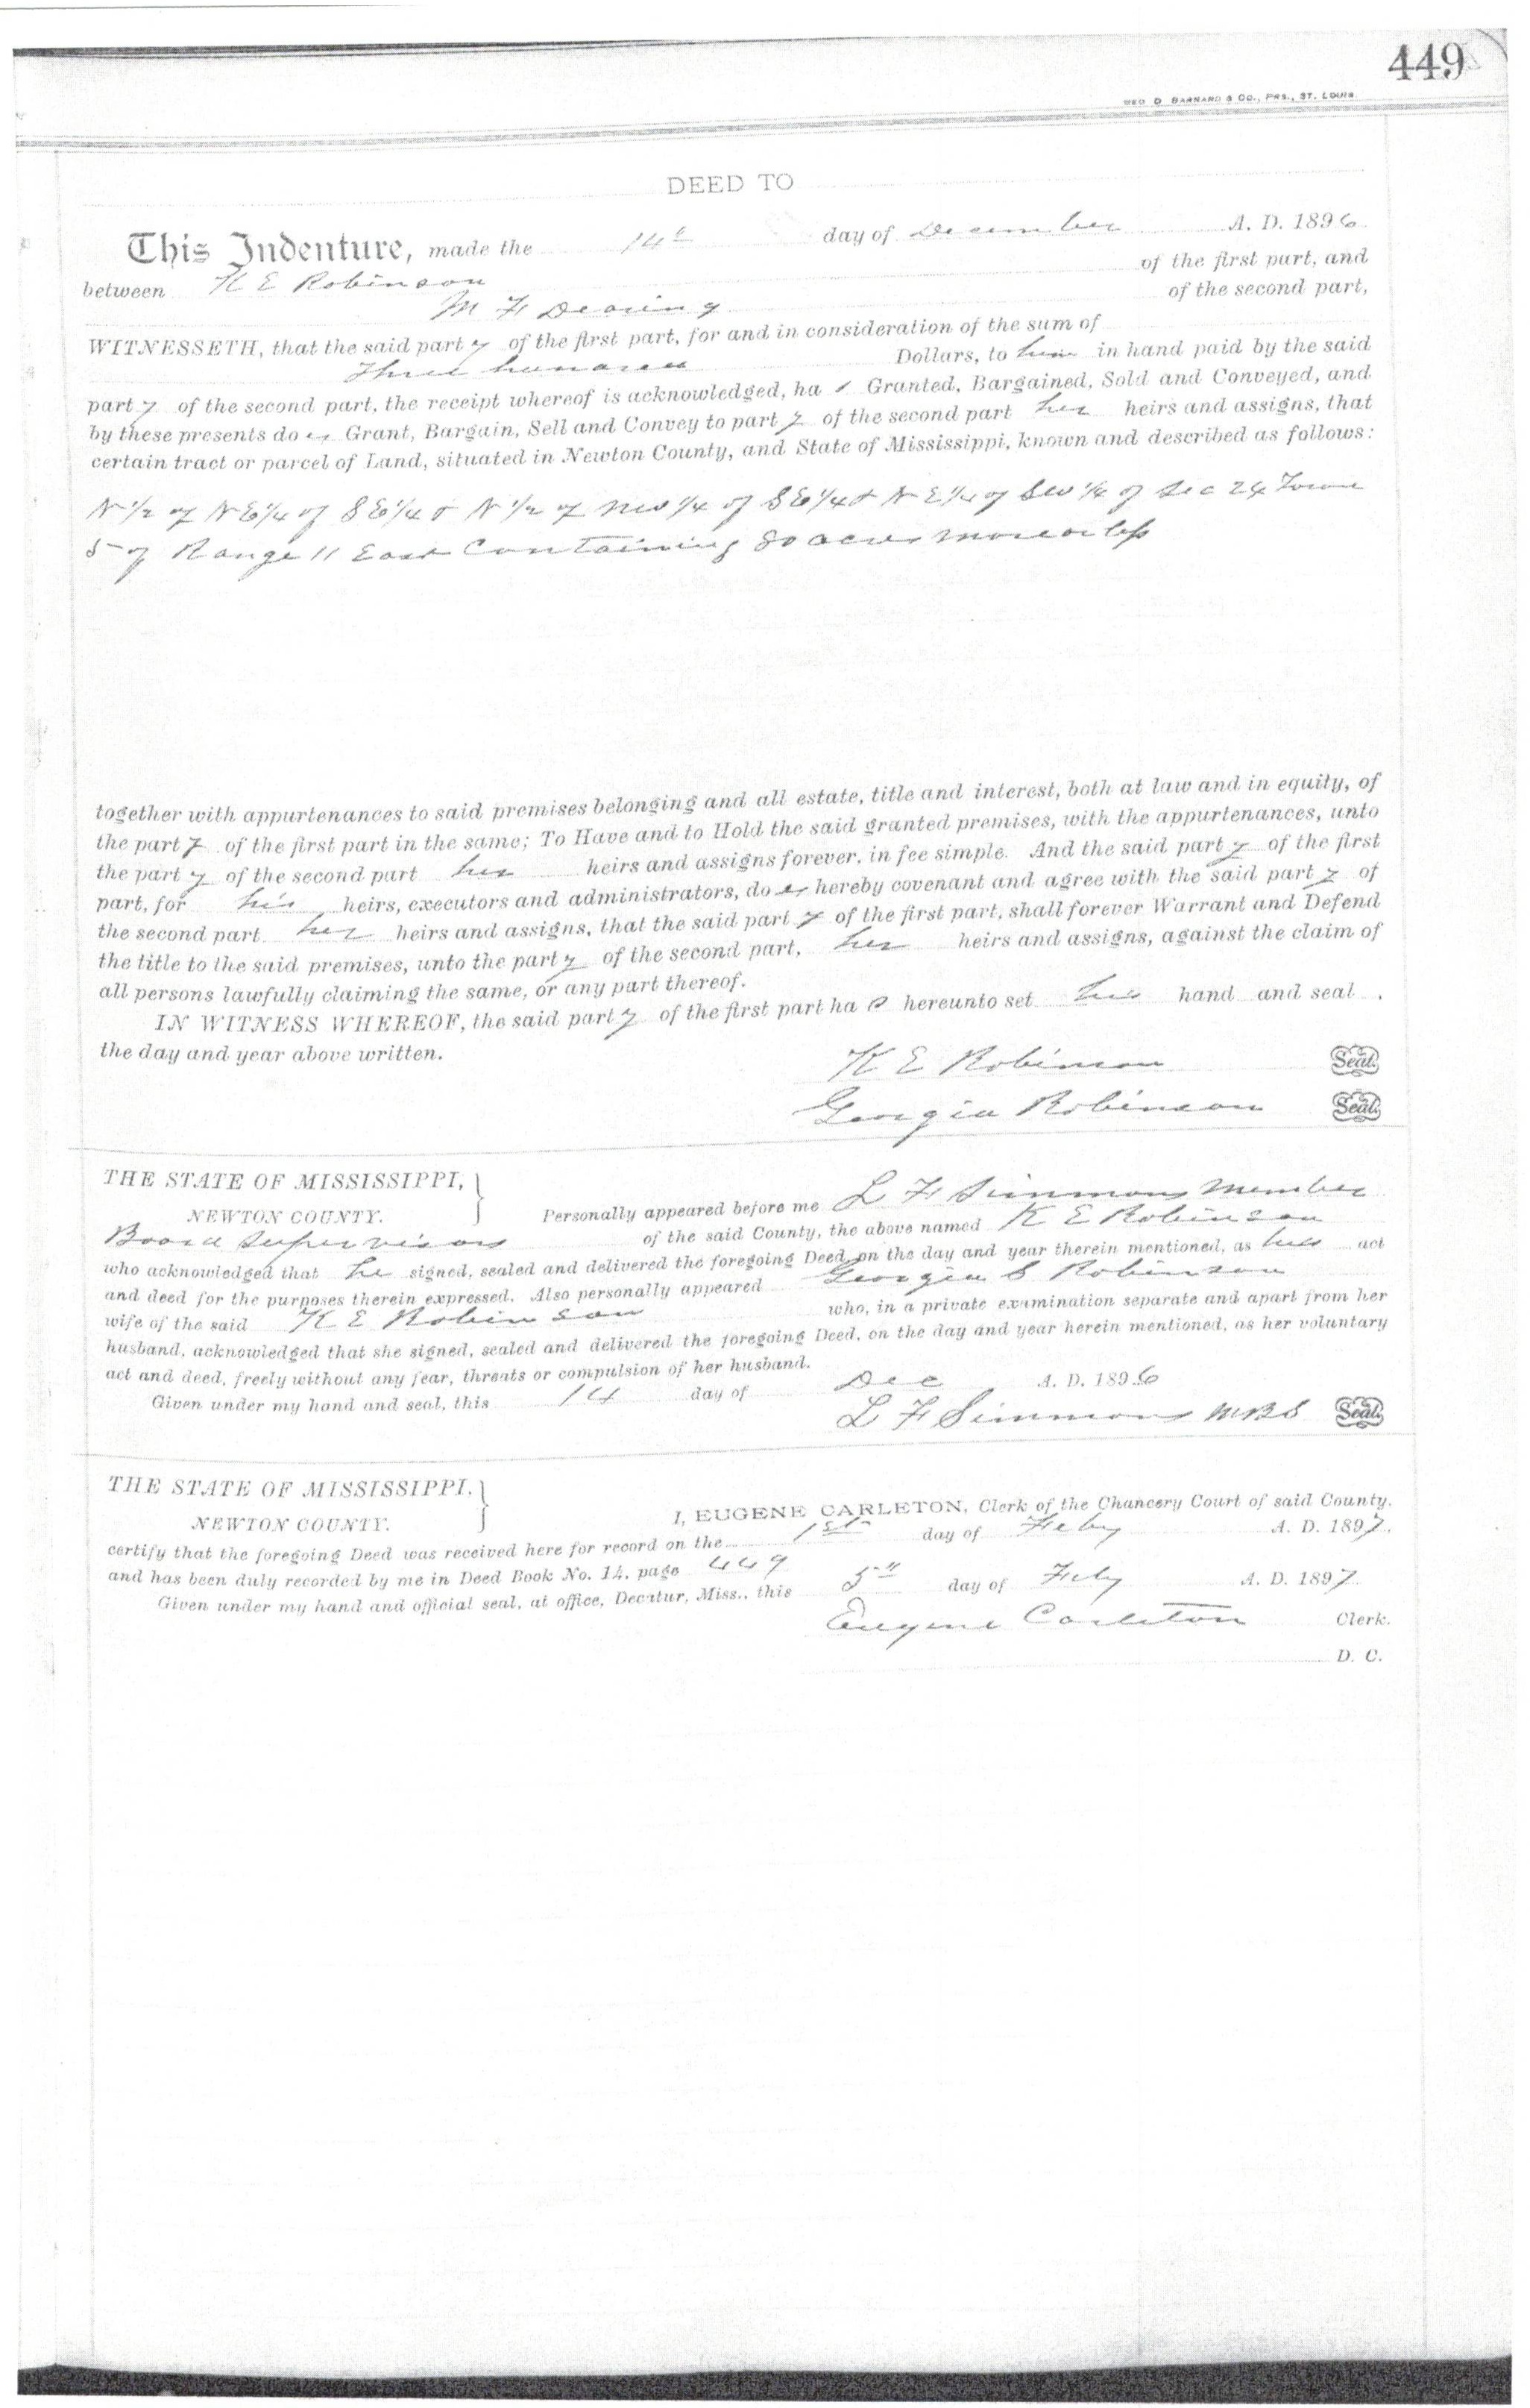 449
GEO. D. BARNARD & CO., PRS., ST. LOUIS.
DEED TO
This Indenture, made the 14th day of December A. D. 1896
between K E Robinson of the first part, and
M F Dearing of the second part,
WITNESSETH, that the said party of the first part, for and in consideration of the sum of
Three hundred Dollars, to him in hand paid by the said
party of the second part, the receipt whereof is acknowledged, has Granted, Bargained, Sold and Conveyed, and
by these presents does Grant, Bargain, Sell and Convey to party of the second part her heirs and assigns, that
certain tract or parcel of Land, situated in Newton County, and State of Mississippi, known and described as follows:
N 1/2 of NE 1/4 of SE 1/4 & N 1/2 of NW 1/4 of SE 1/4 & NE 1/4 of SW 1/4 of Sec 24 Town
5 of Range 11 East Containing 80 acres more or less
together with appurtenances to said premises belonging and all estate, title and interest, both at law and in equity, of
the party of the first part in the same; To Have and to Hold the said granted premises, with the appurtenances, unto
the party of the second part her heirs and assigns forever, in fee simple. And the said party of the first
part, for his heirs, executors and administrators, does hereby covenant and agree with the said party of
the second part her heirs and assigns, that the said party of the first part, shall forever Warrant and Defend
the title to the said premises, unto the party of the second part, her heirs and assigns, against the claim of
all persons lawfully claiming the same, or any part thereof.
IN WITNESS WHEREOF, the said party of the first part has hereunto set his hand and seal .
the day and year above written.
K E Robinson Seal.
Georgia Robinson Seal.
THE STATE OF MISSISSIPPI,
NEWTON COUNTY.
Personally appeared before me L F Simmons Member
Board Supervisors of the said County, the above named K E Robinson
who acknowledged that he signed, sealed and delivered the foregoing Deed on the day and year therein mentioned, as his act
and deed for the purposes therein expressed. Also personally appeared Georgia S Robinson
wife of the said K E Robinson who, in a private examination separate and apart from her
husband, acknowledged that she signed, sealed and delivered the foregoing Deed, on the day and year herein mentioned, as her voluntary
act and deed, freely without any fear, threats or compulsion of her husband.
Given under my hand and seal, this 14 day of Dec A. D. 1896
L F Simmons MBS Seal.
THE STATE OF MISSISSIPPI,
NEWTON COUNTY.
I, EUGENE CARLETON, Clerk of the Chancery Court of said County,
certify that the foregoing Deed was received here for record on the 1st day of Feby A. D. 1897,
and has been duly recorded by me in Deed Book No. 14, page 449
Given under my hand and official seal, at office, Decatur, Miss., this 5" day of Feby A. D. 1897
Eugene Carleton Clerk.
D. C.